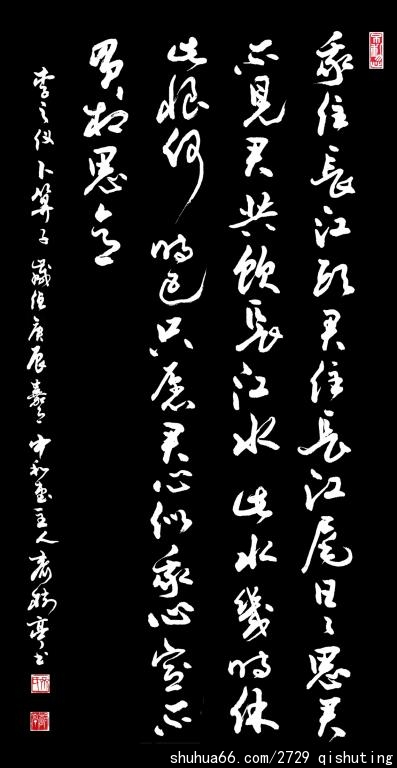 我住長江頭君住長江尾日々思君
不見君共飲長江水此水幾時休
此恨何時已只愿君心似我心定不
負相思意
李之仪卜算子 歲值庚辰 中和 主人齐樹亭书
shuhua66.com/2729 qishuting